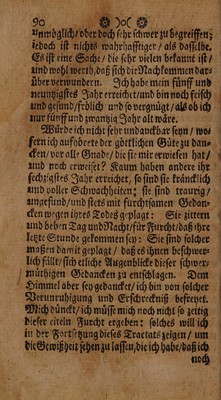 90
unmöglich/ oder doch sehr schwer zu begreiffen;
jedoch ist nichts wahrhafftiger/ als Dasselbe.
Es ist eine Sache/ die sehr vielen bekannt ist/
und wohl werth/ daß sich die Nachkommen dar-
über verwundern. Ich habe mein fünff und
neuntzigstes Jahr erreichet/ und bin noch frisch
und gesund/ frölich und so vergnügt/ als ob ich
nur fünff und zwantzig Jahr alt wäre.
Würde ich nicht sehr undanckbar seyn/ wo-
fern ich aufhörete der göttlichen Güte zu dan-
cken/ vor alle Gnade/ die sie mir erwiesen hat/
und noch erweiset? Kaum haben andere ihr
sechzigstes Jahr erreichet/ so sind sie kräncklich
und voller Schwachheiten; sie sind traurig/
ungesund/ und stets mit furchtsamen Gedan-
cken wegen ihres Todes geplagt: Sie zittern
und beben Tag und Nacht/ für Furcht/ daß ihre
letzte Stunde gekommen sey: Sie sind solcher
massen damit geplagt/ daß es ihnen beschwer-
lich fällt/ sich etliche Augenblicke dieser schwer-
müthigen Gedancken zu entschlagen. Dem
Himmel aber sey gedancket/ ich bin von solcher
Verunruhigung und Erschreckniß befreyet.
Mich dünckt/ ich müsse mich noch nicht so zeitig
dieser eiteln Furcht ergeben: solches will ich
in der Fortsetzung dieses Tractats zeigen/ um
die Gewißheit sehen zu lassen/ die ich habe/ daß ich
noch